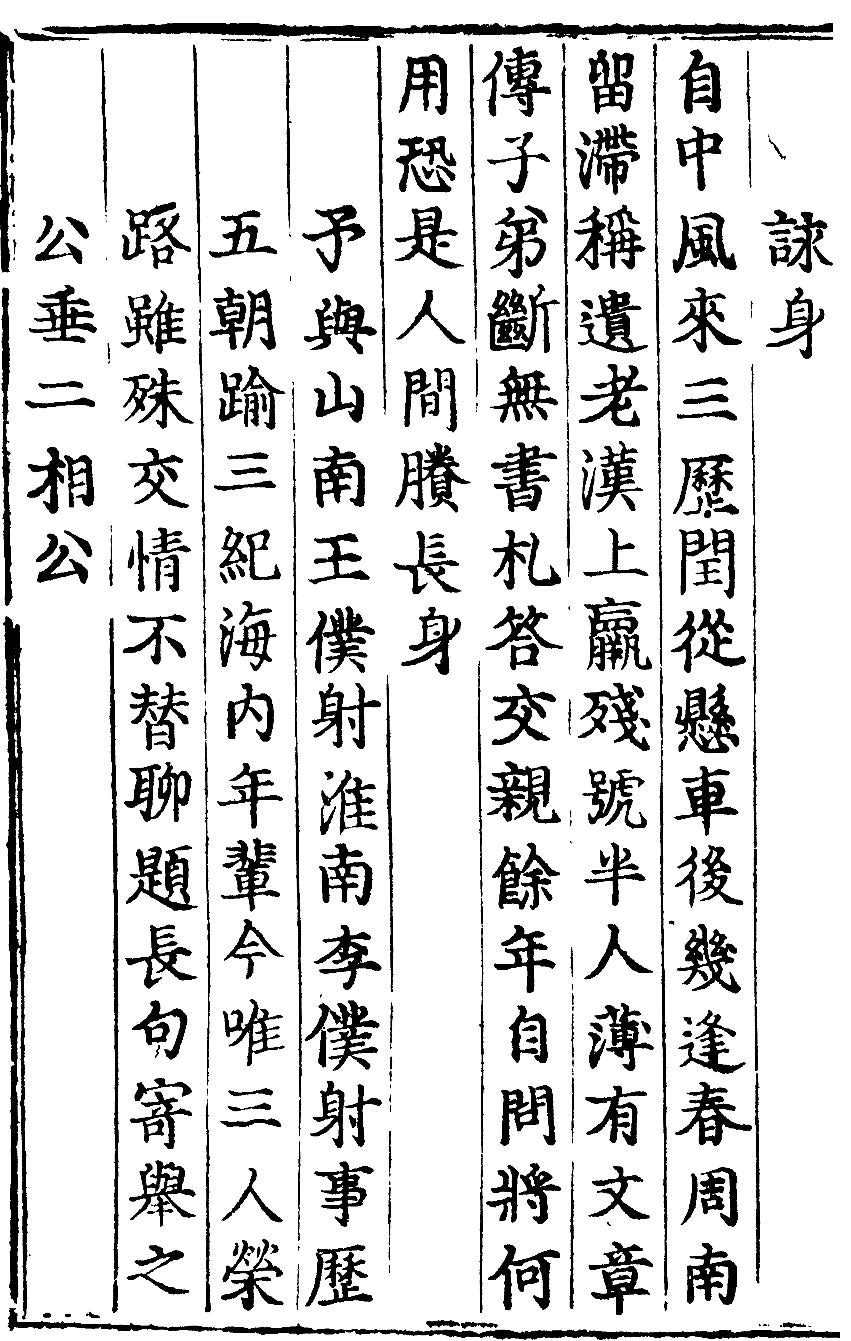 詠身
自中風來三歷閏從懸車後幾逢春周南
留滯稱遺老漢上羸殘號半人薄有文章
傳子弟斷無書札答交親餘年自問將何
用恐是人間賸長身
予與山南王僕射淮南李僕射事歷
五朝踰三紀海内年輩今唯三人榮
路雖殊交情不替聊題長句寄舉之
公垂二相公